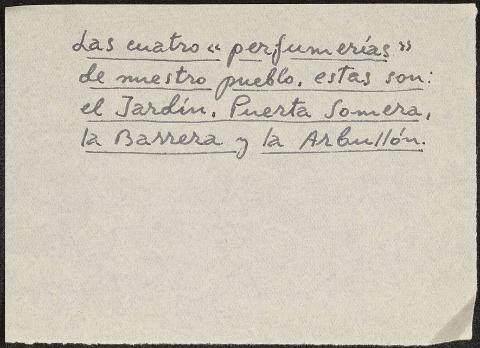 Las cuatro "perfumerías"
de nuestro pueblo, estas son:
el Jardín, Puerta Somera,
la Barrera y la Arbullón.